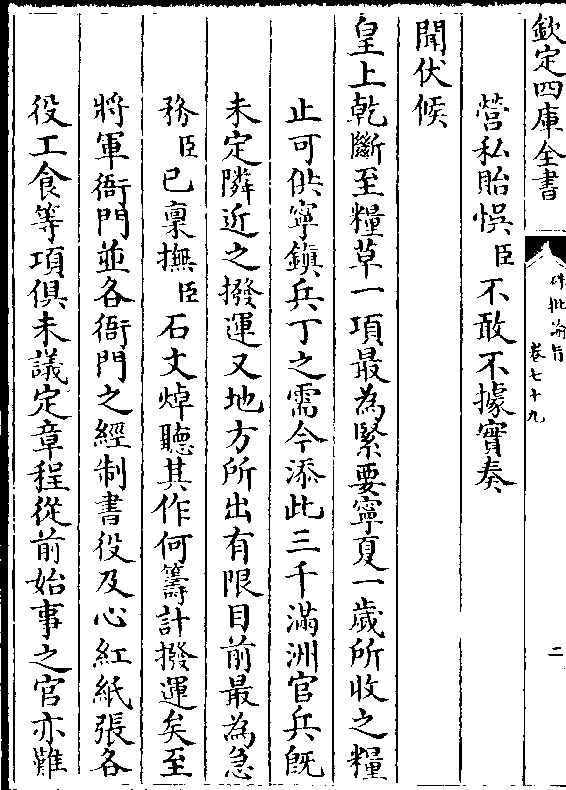 欽定四庫全書
硃批諭旨
卷七十九
二
營私貽悞臣不敢不據實奏
聞伏候
皇上乾斷至糧草一項最為緊要寧夏一歲所收之糧
止可供寧鎮兵丁之需今添此三千滿洲官兵旣
未定隣近之撥運又地方所出有限目前最為急
務臣已稟撫臣石文焯聽其作何籌計撥運矣至
將軍衙門並各衙門之經制書役及心紅紙張各
役工食等項俱未議定章程從前始事之官亦難